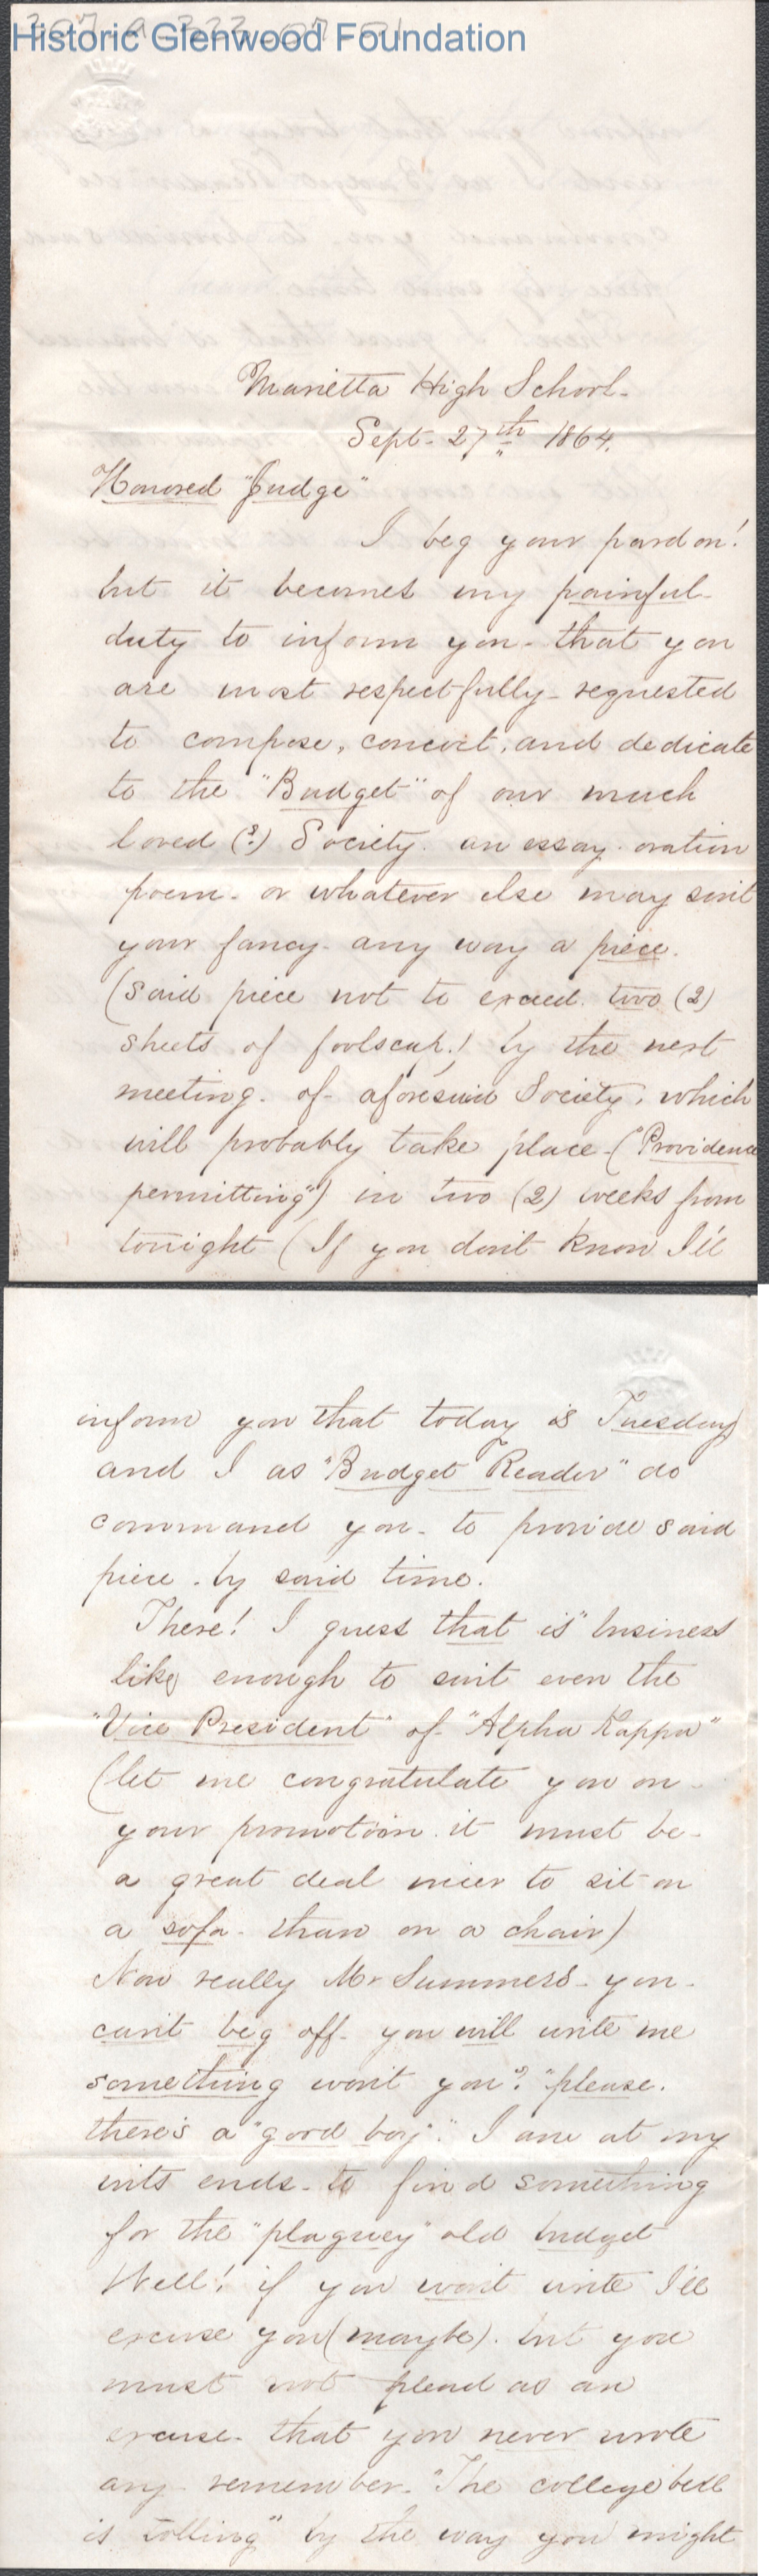 Historic Glenwood Foundation
Marietta High School.
Sept. 27th 1864.
Honored "Judge"
I beg your pardon!
but it becomes my painful
duty to inform you - that you
are most respectfully - requested
to compose, concoct, and dedicate
to the "Budget" of our much
loved (?) Society. an essay. oration
poem - or whatever else may suit
your fancy - any way a piece.
(said piece not to exceed two (2)
sheets of foolscap.) by the next
meeting. of aforesaid Society, which
will probably take place - ("Providence
permitting") in two (2) weeks from
tonight (If you don't know I'll
inform you that today is Tuesday)
and I as "Budget Reader" do
command you - to provide said
piece. by said time.
There! I guess that is "business
like enough to suit even the
"Vice President" of "Alpha Kappa"
(let me congratulate you on -
your promotion. it must be -
a great deal nicer to sit on
a sofa - than on a chair)
Now really Mr Summers - you -
can't beg off - you will write me
something won't you? "please.
there's a "good boy". I am at my
wits ends - to find something
for the "plaguey" old budget
Well! if you won't write I'll
excuse you (maybe). but you
must not plead as an
excuse - that you never wrote
any - remember - "The college bell
is tolling" by the way you might